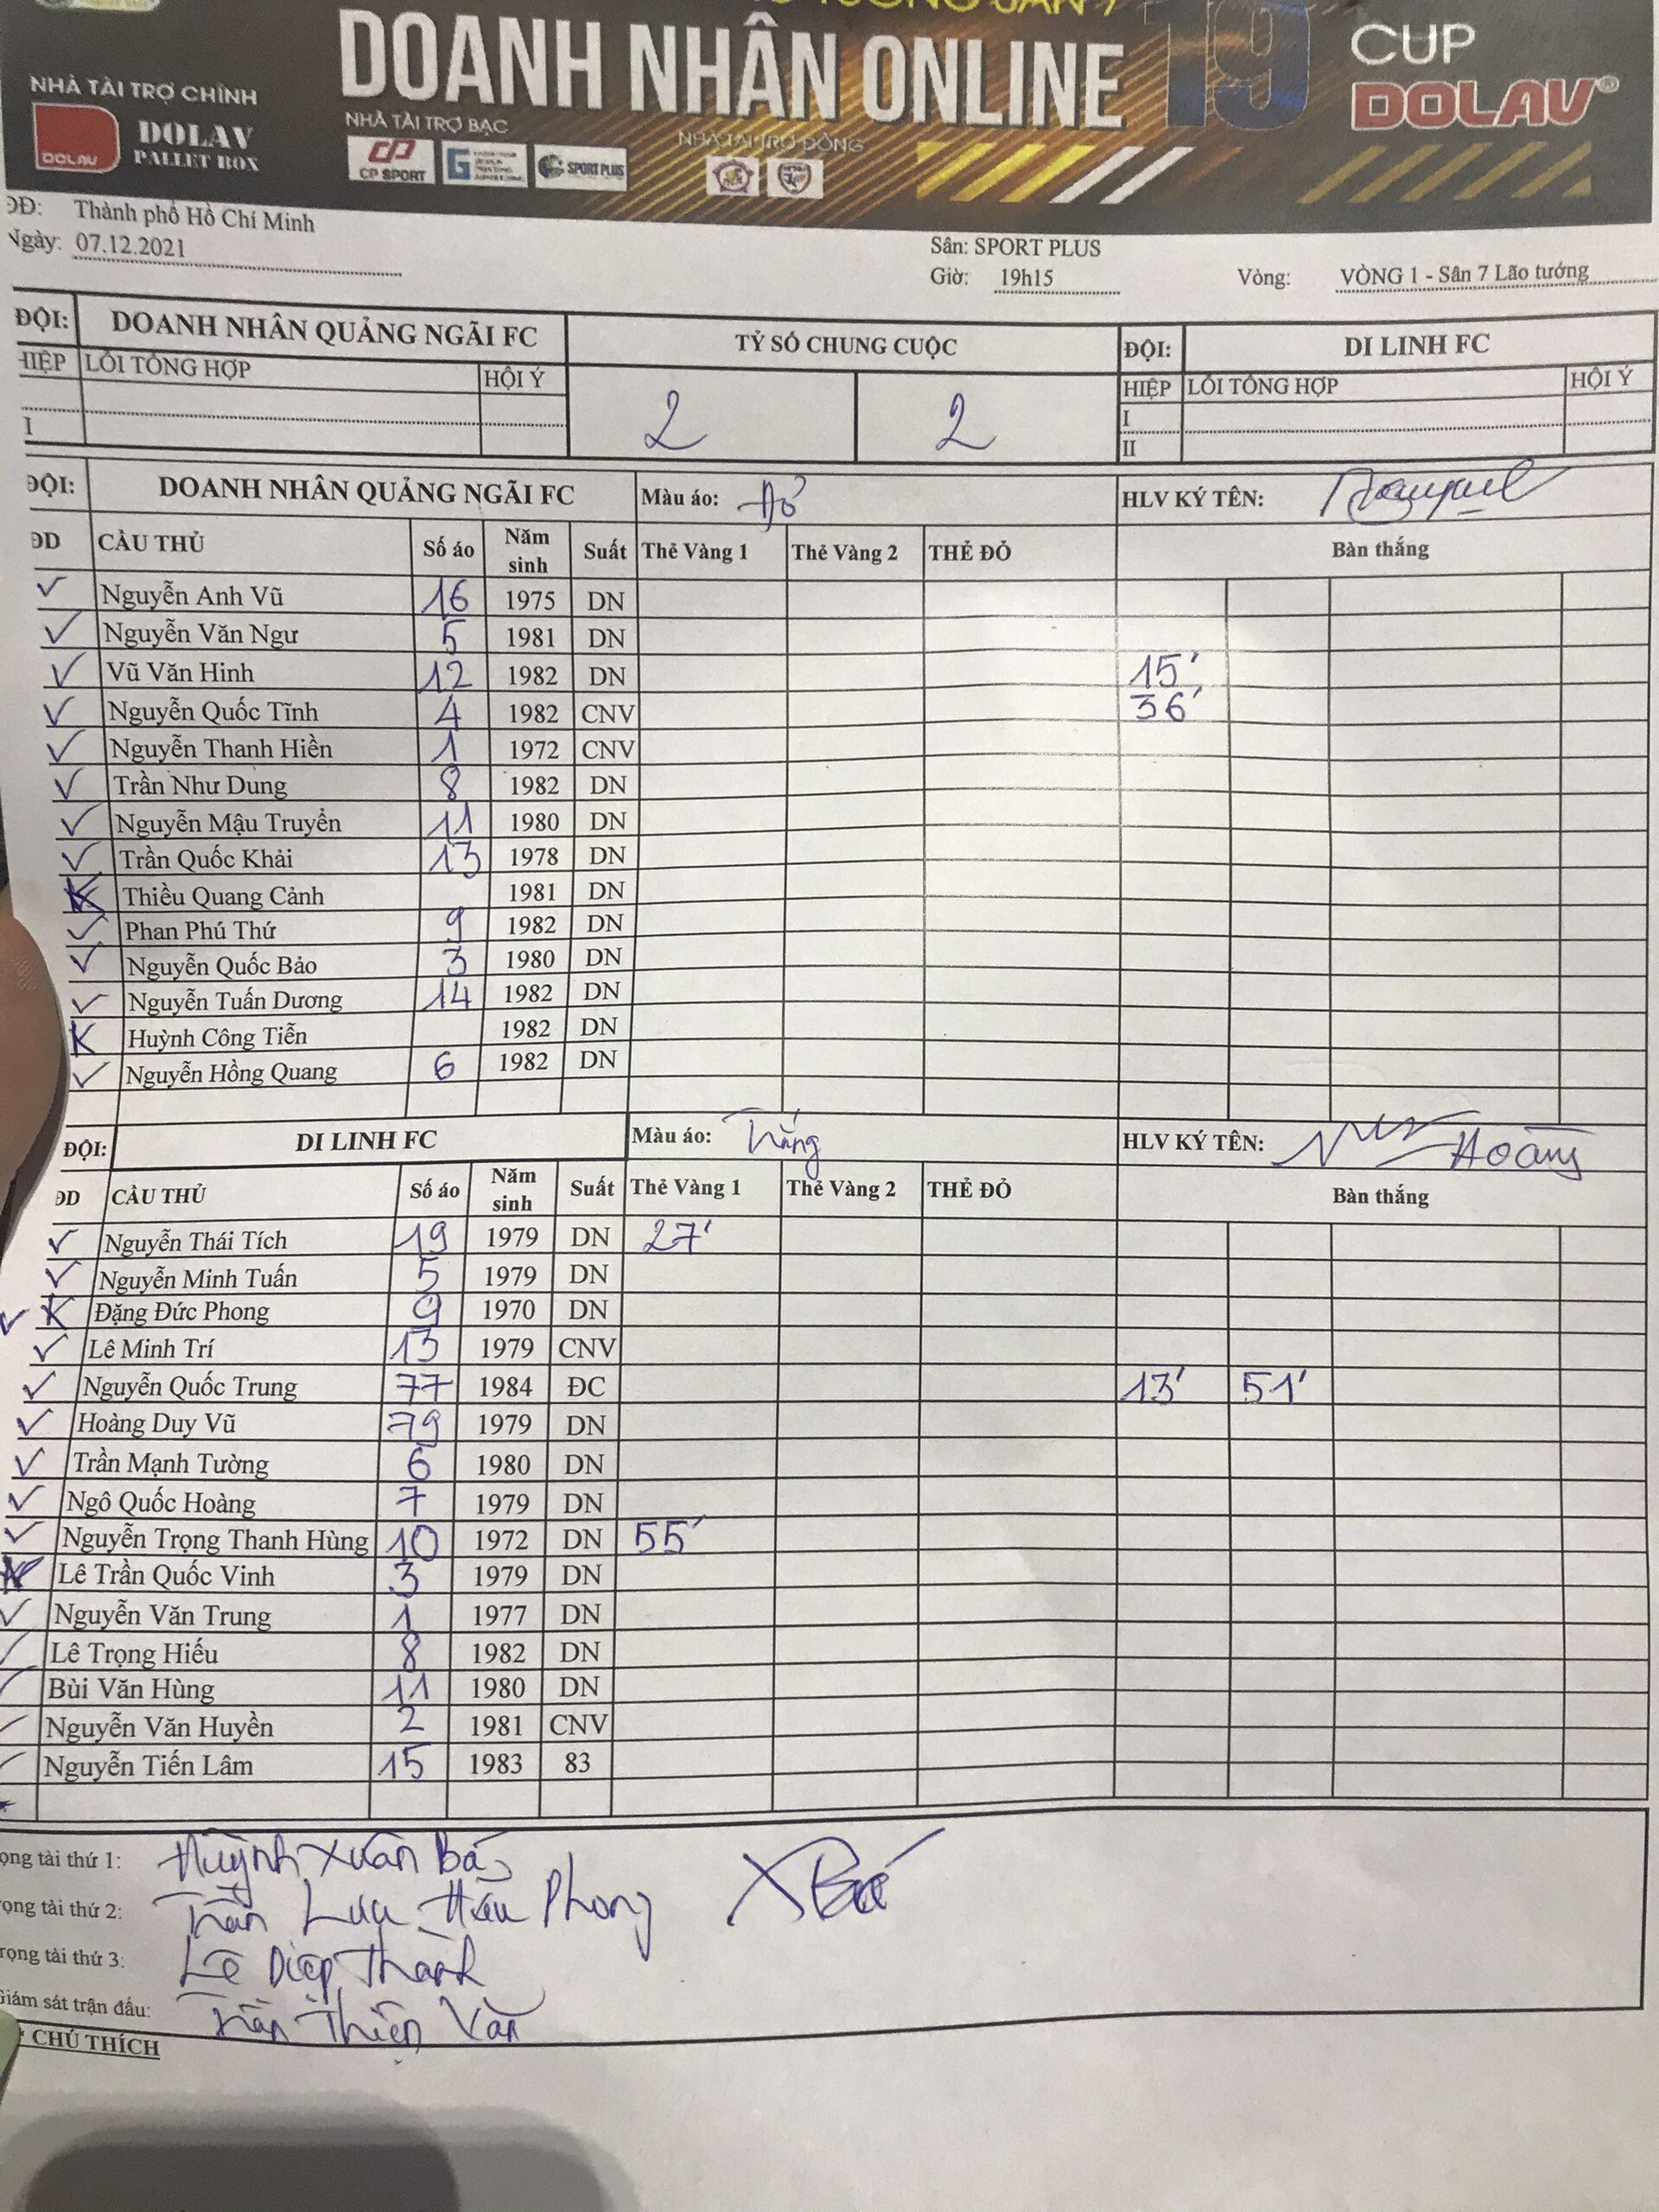 DOANH NHÂN ONLINE 19 CUP DOLAV®
NHÀ TÀI TRỢ CHÍNH
DOLAV
DOLAV PALLET BOX
NHÀ TÀI TRỢ BẠC
CP SPORT
SPORT PLUS
NHÀ TÀI TRỢ ĐỒNG
ĐĐ: Thành phố Hồ Chí Minh
Ngày: 07.12.2021
Sân: SPORT PLUS
Giờ: 19h15 Vòng: VÒNG 1 - Sân 7 Lão tướng
ĐỘI: DOANH NHÂN QUẢNG NGÃI FC TỶ SỐ CHUNG CUỘC ĐỘI: DI LINH FC
HIỆP LỖI TỔNG HỢP HỘI Ý 2 2 HIỆP LỖI TỔNG HỢP HỘI Ý
I
I II
ĐỘI: DOANH NHÂN QUẢNG NGÃI FC Màu áo: Đỏ HLV KÝ TÊN:
ĐD CẦU THỦ Số áo Năm sinh Suất Thẻ Vàng 1 Thẻ Vàng 2 THẺ ĐỎ Bàn thắng
✓ Nguyễn Anh Vũ 16 1975 DN
✓ Nguyễn Văn Ngư 5 1981 DN
✓ Vũ Văn Hinh 12 1982 DN 15'
✓ Nguyễn Quốc Tĩnh 4 1982 CNV 36'
✓ Nguyễn Thanh Hiền 1 1972 CNV
✓ Trần Như Dung 8 1982 DN
✓ Nguyễn Mậu Truyền 11 1980 DN
✓ Trần Quốc Khải 13 1978 DN
K Thiều Quang Cảnh 1981 DN
✓ Phan Phú Thứ 9 1982 DN
✓ Nguyễn Quốc Bảo 3 1980 DN
✓ Nguyễn Tuấn Dương 14 1982 DN
K Huỳnh Công Tiễn 1982 DN
✓ Nguyễn Hồng Quang 6 1982 DN
ĐỘI: DI LINH FC Màu áo: Trắng HLV KÝ TÊN: Hoàng
ĐD CẦU THỦ Số áo Năm sinh Suất Thẻ Vàng 1 Thẻ Vàng 2 THẺ ĐỎ Bàn thắng
✓ Nguyễn Thái Tích 19 1979 DN 27'
✓ Nguyễn Minh Tuấn 5 1979 DN
✓ K Đặng Đức Phong 9 1970 DN
✓ Lê Minh Trí 13 1979 CNV
✓ Nguyễn Quốc Trung 77 1984 ĐC 13' 51'
✓ Hoàng Duy Vũ 79 1979 DN
✓ Trần Mạnh Tường 6 1980 DN
✓ Ngô Quốc Hoàng 7 1979 DN
✓ Nguyễn Trọng Thanh Hùng 10 1972 DN 55'
Lê Trần Quốc Vinh 3 1979 DN
✓ Nguyễn Văn Trung 1 1977 DN
✓ Lê Trọng Hiếu 8 1982 DN
✓ Bùi Văn Hùng 11 1980 DN
✓ Nguyễn Văn Huyền 2 1981 CNV
✓ Nguyễn Tiến Lâm 15 1983 83
ọng tài thứ 1: Huỳnh Xuân Bá
rọng tài thứ 2: Trần Lưu Hậu Phong XBá
rọng tài thứ 3: Lê Diệp Thành
Giám sát trận đấu: Trần Thiện Văn
* CHÚ THÍCH